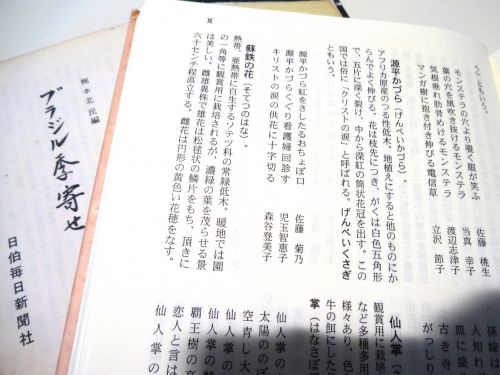 夏
うこともいう。
モンステラの穴より覗く眼が笑ふ　佐藤 桃生
葉の穴を風吹き抜けるモンステラ　当真 幸子
気根垂れ肋骨めけるモンステラ　渡辺志津子
マンガ樹に抱き付き伸びる電信草　立沢 節子
源平かづら（げんぺいかづら）。
アフリカ原産のつる性低木。地植えにすると他のものにか
らんでよく伸びる。花は枝先につき、がくは白色五角形
で、五片に深く裂け、中から深紅の筒状花冠を出す。この
国では俗に「クリストの涙」と呼ばれる。げんぺいくさぎ
ともいう。
源平かづら紅をさしたるおちょぼ口　佐藤 菊乃
源平かづらくぐり看護婦回診す　児玉智恵子
キリストの涙の供花に十字切る　森谷登美子
蘇鉄の花（そてつのはな）。
熱帯、亜熱帯に自生するソテツ科の常緑低木。暖地では園
の一角等に観賞用に栽培されるが、濃緑の葉を茂らせる景
は美しい。雌雄異株で雄花は松毬状の鱗片をもち、頂きに
六十センチ程直立する。雌花は円形の黄色い花穂をなす。
孫嫁は
人知れ
皿に盛
古き寺
がっしり
仙人掌（
掌（はなさぼ
観賞用に栽培
など多種多用
様々あり、色
牛の餌にした
仙人掌
太陽のの
空青し大
仙人掌の
覇王樹の
恋人と言は
仙人掌の
梶本北民編
ブラジル季寄せ
日伯毎日新聞社